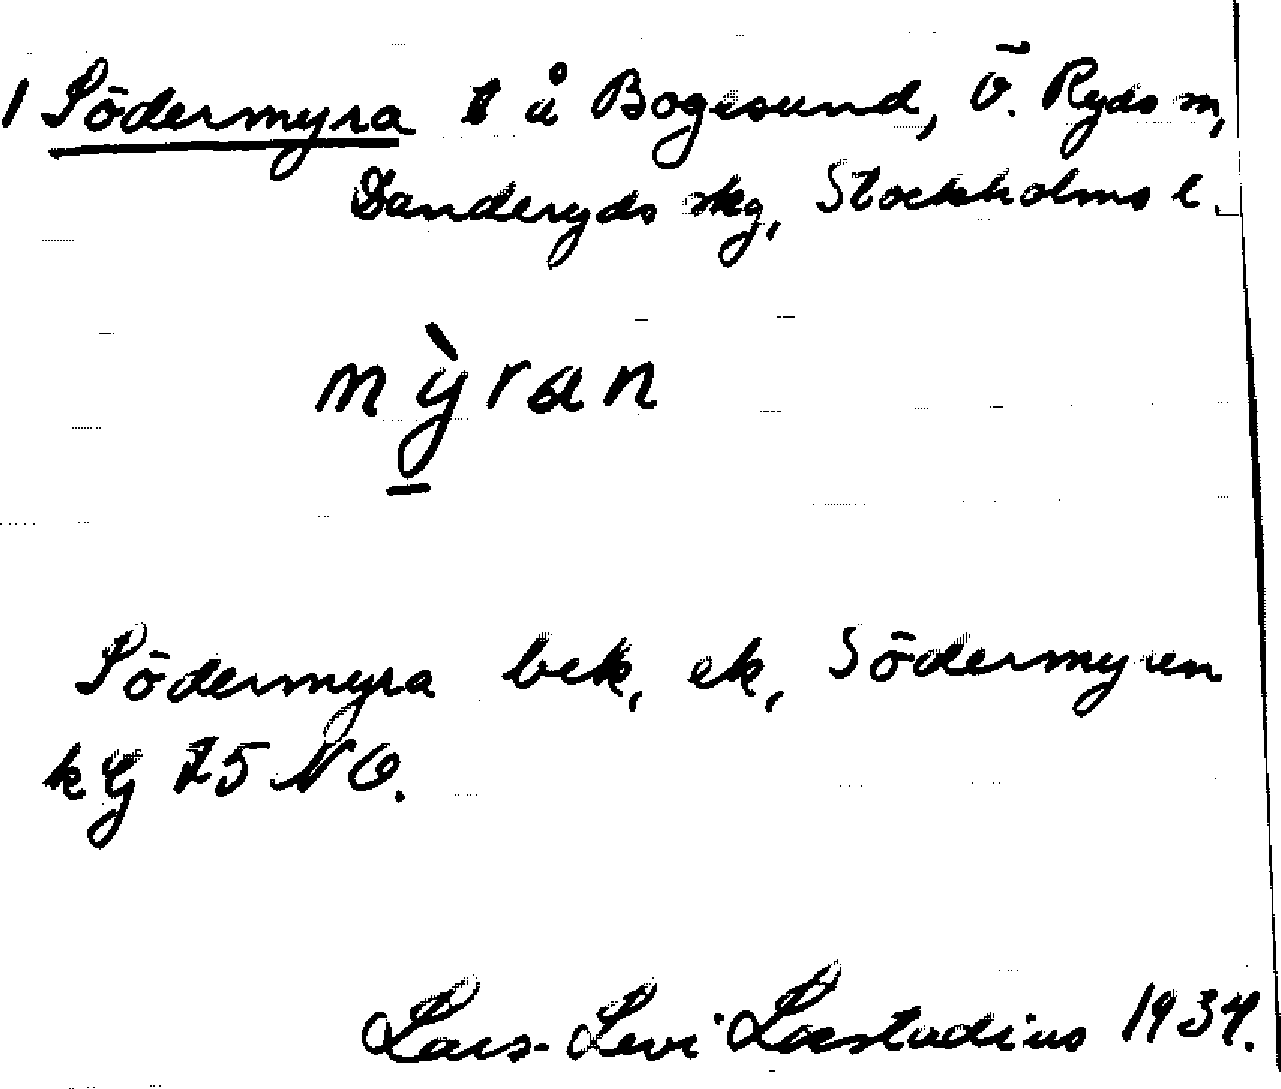 1 Södermyra t å Bogesund, Ö. Ryds sn,
Danderyds skg, Stockholms l.
mỳran
Södermyra bek, ek, Södermyren
kg 75 NO.
Lars-Levi Læstadius 1934.